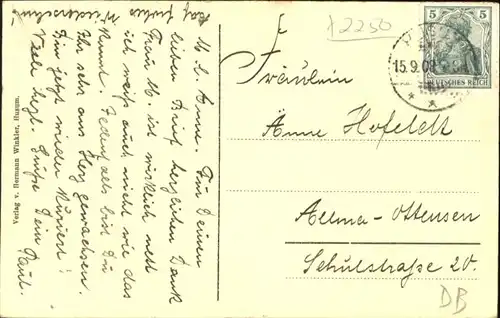 Auf frohes Wiedersehen!
M. l. Änne. Für Deinen
lieben Brief herzlichen Dank
Frau M. ist wirklich nett
ich weiß auch nicht wie das
kommt. Jedenfalls bist Du
Ihr sehr ans Herz gewachsen.
Bist jetzt wieder kuriert?
Viele herzl. Grüße Dein
Paul.
Verlag v. Hermann Winkler, Husum.
12250
5 5
DEUTSCHES REICH
15.9.0
Fräulein
Änne Hofeldt
Altona-Ottensen
Schulstraße 20.
DB